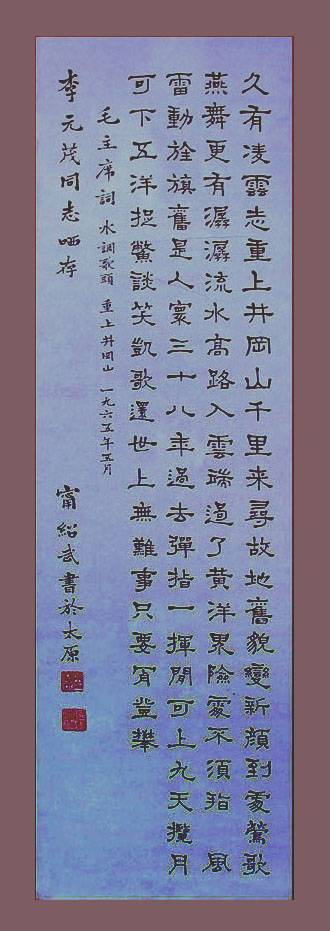 久有凌雲志重上井岡山千里来尋故地舊貌變新顔到處鶯歌
燕舞更有潺潺流水高路入雲端過了黄洋界險處不須指 風
雷動旌旗奮是人寰三十八年過去彈指一揮間可上九天攬月
可下五洋捉鱉談笑凱歌還世上無難事只要肯登攀
毛主席詞 水調歌頭 重上井岡山 一九六五年五月
李元茂同志哂存 甯紹武書於太原